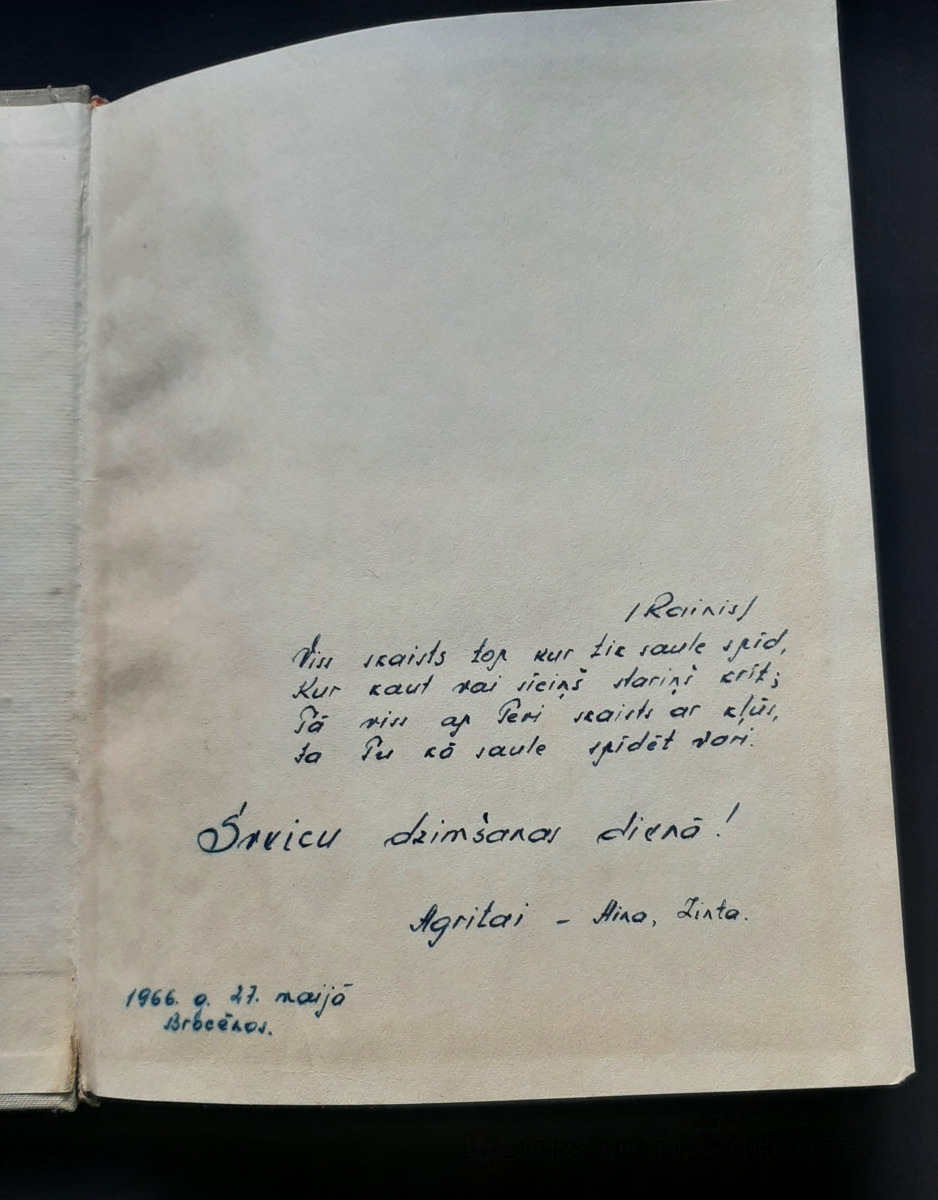 /Rainis/
Viss skaists top kur tik saule spīd,
Kur kaut vai sīciņš stariņš krīt;
Tā viss ap Tevi skaists ar kļūs,
Ja Tu kā saule spīdēt vari.
Sveicu dzimšanas dienā!
Agritai – Aina, Zinta.
1966. g. 27. maijā
Brocēnos.
BALTARS AUCTION HOUSE